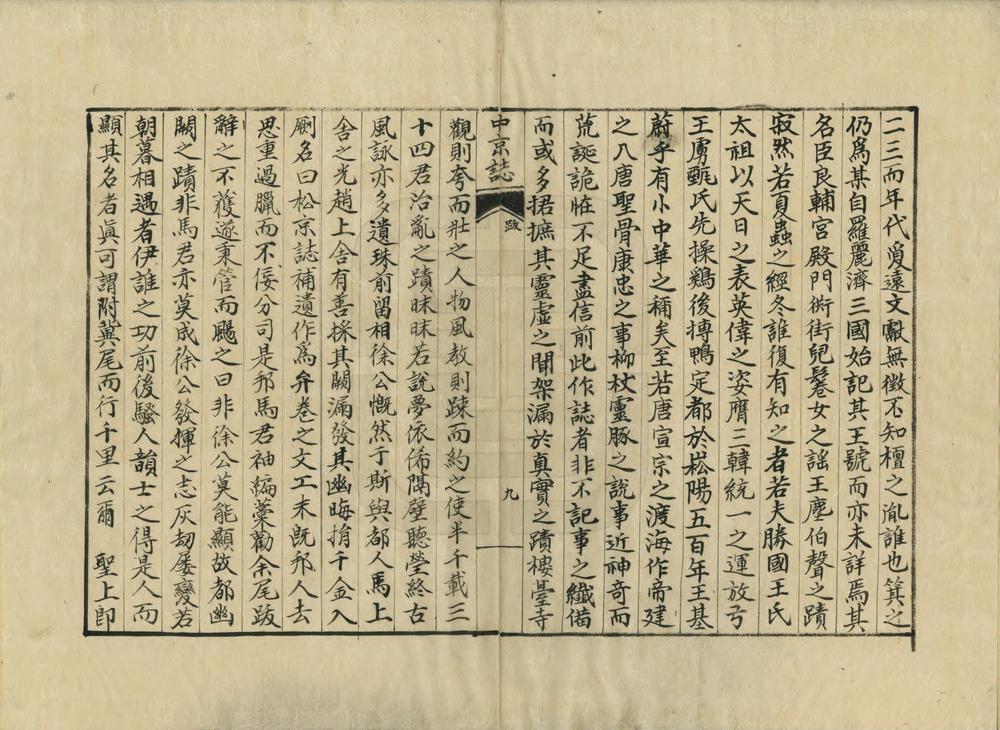 二三而年代夐遠文獻無徵不知檀之胤誰也箕之
仍爲某自羅麗濟三國始記其王號而亦未詳焉其
名臣良輔宮殿門衖街兒鬟女之謠王塵伯聲之蹟
寂然若夏蟲之經冬誰復有知之者若夫勝國王氏
太祖以天日之表英偉之姿膺三韓統一之運放弓
王虜甄氏先操鷄後搏鴨定都於崧陽五百年王基
蔚乎有小中華之稱矣至若唐宣宗之渡海作帝建
之入唐聖骨康忠之事柳杖靈豚之說事近神奇而
荒誕詭怪不足盡信前此作誌者非不記事之纎備
而或多捃摭其靈虛之聞架漏於真實之蹟樓臺寺
中京誌 跋 九
觀則夸而壯之人物風教則踈而約之使半千載三
十四君治亂之蹟昧昧若說夢依俙隔壁聽瑩終古
風詠亦多遺珠前留相徐公慨然于斯與都人馬上
舍之光趙上舍有善採其闕漏發其幽晦捐千金入
劂名曰松京誌補遺作爲弁卷之文工未旣邦人去
思重過臘而不佞分司是邦馬君袖編藁勸余尾跋
辭之不獲遂秉管而颺之曰非徐公莫能顯故都幽
闕之蹟非馬君亦莫成徐公發揮之志灰刼屢變若
朝暮相遇者伊誰之功前後騷人韻士之得是人而
顯其名者眞可謂附兾尾而行千里云爾 聖上卽